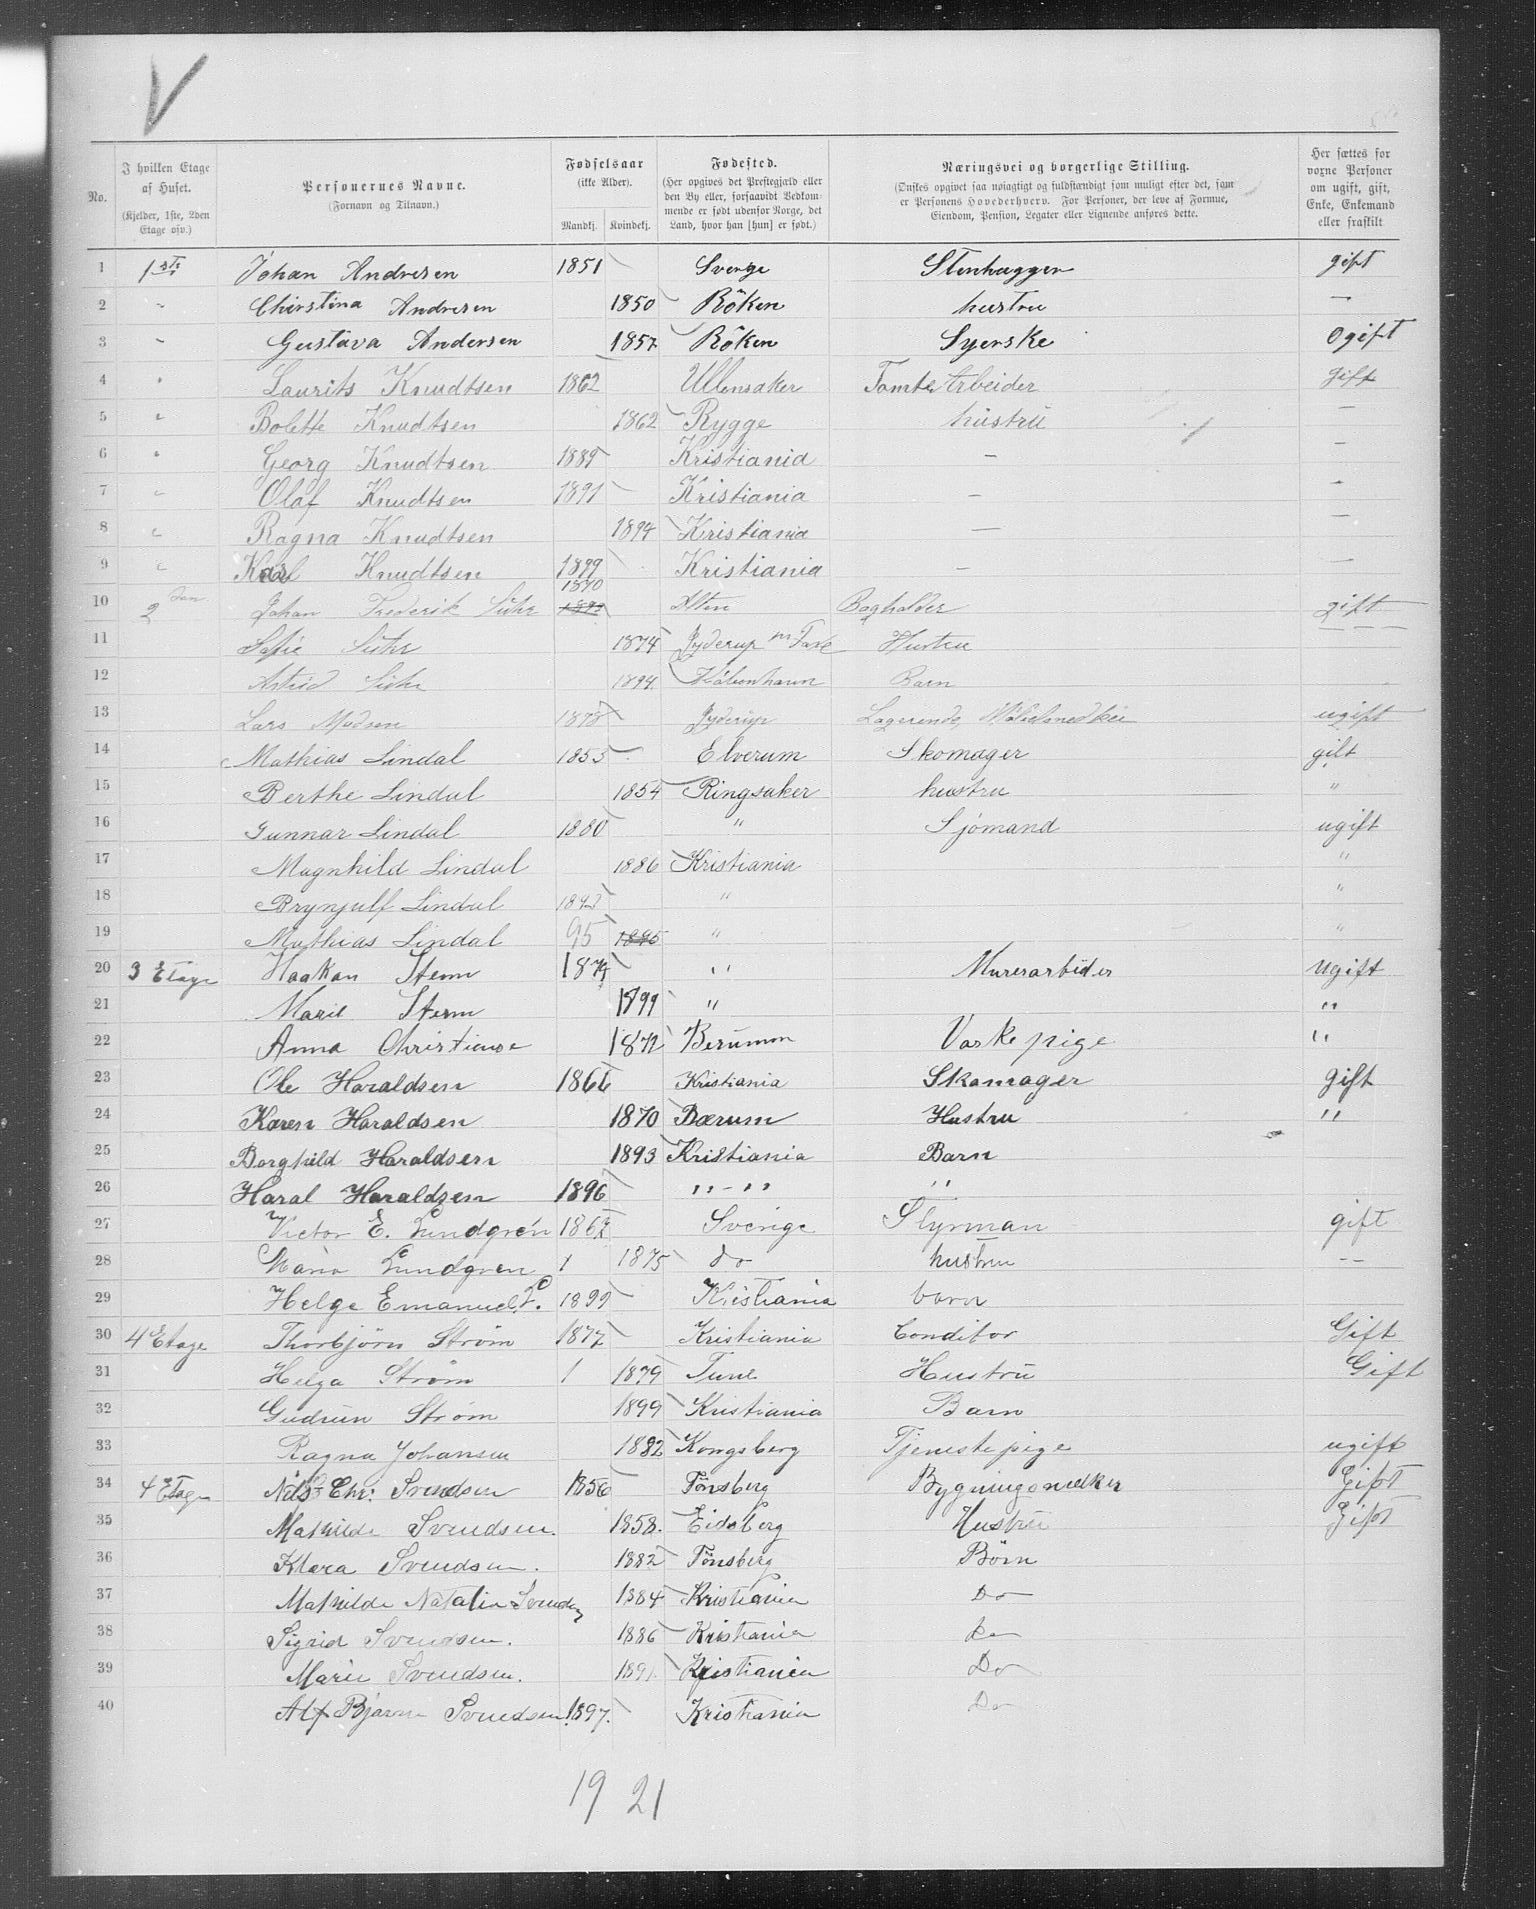 V
No. | I hvilken Etage af Huset. (Kjelder, 1ste, 2den Etage osv.) | Personernes Navne. (Fornavn og Tilnavn.) | Fødselsaar (ikke Alder). Mandkj. Kvindekj. | Fødested. (Her opgives det Prestegjæld eller den By eller, forsaavidt Bedkommende er født udenfor Norge, det Land, hvor han [hun] er født.) | Næringsvei og borgerlige Stilling. (Ønskes opgivet saa nøiagtigt og fuldstændigt som muligt efter det, som er Personens Hovederhverv. For Personer, der leve af Formue, Eiendom, Pension, Legater eller Lignende anføres dette. | Her sættes for voxne Personer om ugift, gift, Enke, Enkemand eller fraskilt
1 1ste Johan Andresen 1851 Sverge Stenhugger gift
2 " Christina Andresen 1850 Röken hustru —
3 " Gustava Andersen 1857 Röken Syerske Ogift
4 " Laurits Knudtsen 1862 Ullensaker Tomte Arbeider gift
5 " Bolette Knudtsen 1862 Rygge hustru —
6 " Georg Knudtsen 1889 Kristiania — —
7 " Olaf Knudtsen 1891 Kristiania — —
8 " Ragna Knudtsen 1894 Kristiania — —
9 " Karl Knudtsen 1899 Kristiania — —
10 2den Johan Frederik Suhr 1870 Alten Bogholder gift
11 Sofie Suhr 1874 Jyderup Hustru
12 Astrid Suhr 1894 København Barn
13 Lars Madsen 1878 Jyderup Logerende, ugift
14 Mathias Lindal 1853 Elverum Skomager gift
15 Berthe Lindal 1854 Ringsaker hustru "
16 Gunnar Lindal 1880 " Sjömand ugift
17 Magnhild Lindal 1886 Kristiania "
18 Brynjulf Lindal " "
19 Mathias Lindal 95 1895 " "
20 3 Etage Haakon Sterm " Murerarbeider ugift
21 Marie Sterm 1899 " "
22 Anna Christianse 1872 Berumm Vaskepige "
23 Ole Haraldsen 1866 Kristiania Skomager gift
24 Karen Haraldsen 1870 Bærum Hustru "
25 Borghild Haraldsen 1893 Kristiania Barn
26 Haral Haraldsen 1896 " - " "
27 Victor E. Lundgrén Sverige Styrman gift
28 Maria Lundgren 1 1875 do hustru —
29 Helge Emanuel L. 1899 Kristiania barn
30 4 Etage Thorbjörn Strøm 1877 Kristiania Conditor Gift
31 Helga Strøm 1 1879 Tune Hustru Gift
32 Gudrun Strøm 1899 Kristiania Barn
33 Ragna Johansen 1882 Kongsberg Tjenestepige ugift
34 4 Etage Nils Chr: Svendsen 1856 Tönsberg Bygningsnedker Gift
35 Mathilde Svendsen. 1858. Eidsberg Hustru Gift
36 Klara Svendsen. 1882 Tönsberg Börn
37 Mathilde Natalia Svendsen 1884 Kristiania Do
38 Sigrid Svendsen. 1886 Kristiania Do
39 Marie Svendsen. 1891. Kristiania Do
40 Alf Bjarne Svendsen. 1897. Kristiania Do
19 21